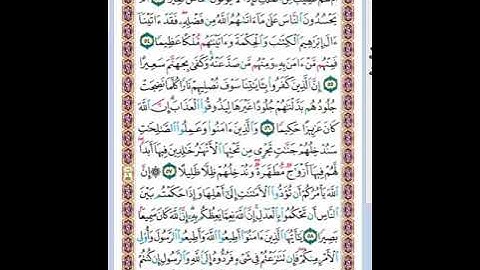 أم لهم نصيب من الملك فإذا لا يؤتون الناس نقيرا ٥٣ أم
يَحْسُدُونَ ٱلنَّاسَ عَلَىٰ مَآ ءَاتَىٰهُمُ ٱللَّهُ مِن فَضْلِهِۦ فَقَدْ ءَاتَيْنَآ
ءَالَ إِبْرَٰهِيمَ ٱلْكِتَٰبَ وَٱلْحِكْمَةَ وَءَاتَيْنَٰهُم مُّلْكًا عَظِيمًا ٥٤
فَمِنْهُم مَّنْ ءَامَنَ بِهِۦ وَمِنْهُم مَّن صَدَّ عَنْهُ وَكَفَىٰ بِجَهَنَّمَ سَعِيرًا
٥٥ إِنَّ ٱلَّذِينَ كَفَرُوا۟ بِـَٔايَٰتِنَا سَوْفَ نُصْلِيهِمْ نَارًا كُلَّمَا نَضِجَتْ
جُلُودُهُم بَدَّلْنَٰهُمْ جُلُودًا غَيْرَهَا لِيَذُوقُوا۟ ٱلْعَذَابَ إِنَّ ٱللَّهَ
كَانَ عَزِيزًا حَكِيمًا ٥٦ وَٱلَّذِينَ ءَامَنُوا۟ وَعَمِلُوا۟ ٱلصَّٰلِحَٰتِ
سَنُدْخِلُهُمْ جَنَّٰتٍ تَجْرِى مِن تَحْتِهَا ٱلْأَنْهَٰرُ خَٰلِدِينَ فِيهَآ أَبَدًا
لَّهُمْ فِيهَآ أَزْوَٰجٌ مُّطَهَّرَةٌ وَنُدْخِلُهُمْ ظِلًّا ظَلِيلًا ٥٧ إِنَّ
ٱللَّهَ يَأْمُرُكُمْ أَن تُؤَدُّوا۟ ٱلْأَمَٰنَٰتِ إِلَىٰٓ أَهْلِهَا وَإِذَا حَكَمْتُم بَيْنَ
ٱلنَّاسِ أَن تَحْكُمُوا۟ بِٱلْعَدْلِ إِنَّ ٱللَّهَ نِعِمَّا يَعِظُكُم بِهِۦٓ إِنَّ ٱللَّهَ كَانَ سَمِيعًۢا
بَصِيرًا ٥٨ يَٰٓأَيُّهَا ٱلَّذِينَ ءَامَنُوٓا۟ أَطِيعُوا۟ ٱللَّهَ وَأَطِيعُوا۟ ٱلرَّسُولَ وَأُو۟لِى
ٱلْأَمْرِ مِنكُمْ فَإِن تَنَٰزَعْتُمْ فِى شَىْءٍ فَرُدُّوهُ إِلَى ٱللَّهِ وَٱلرَّسُولِ إِن كُنتُمْ